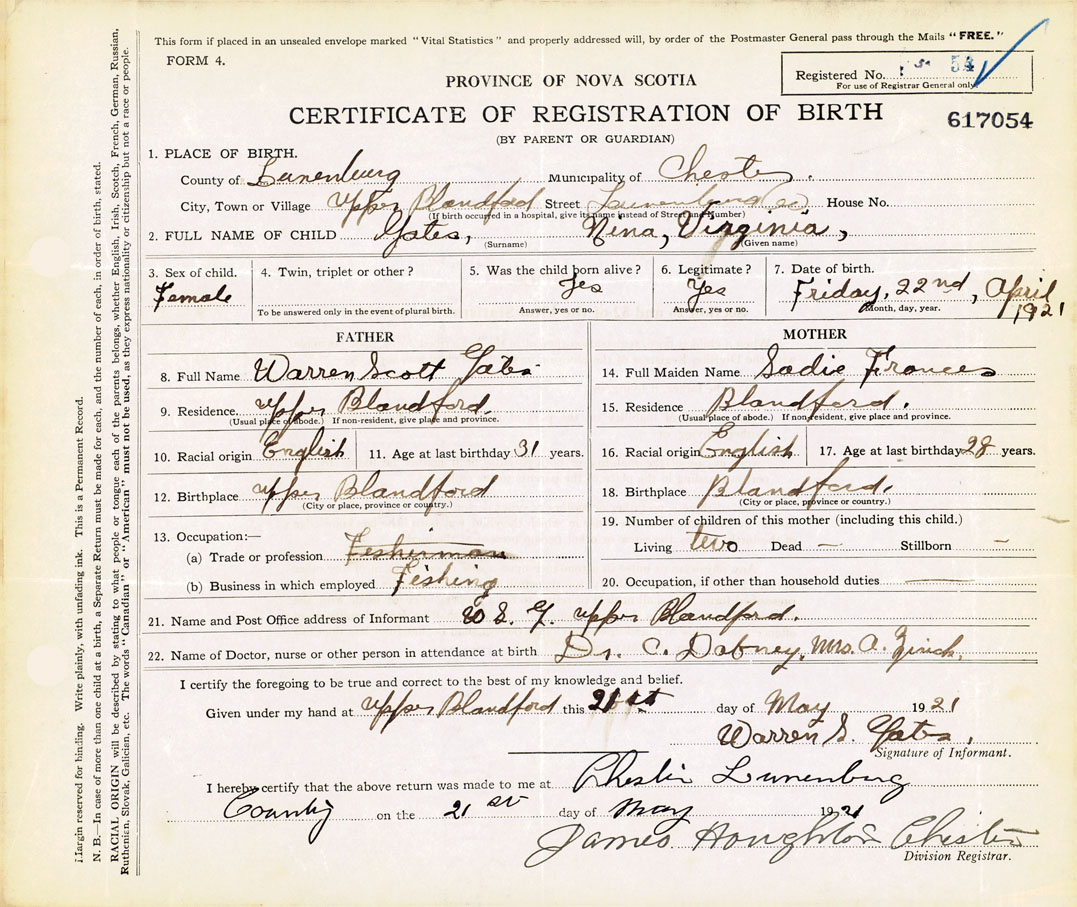 This form if placed in an unsealed envelope marked "Vital Statistics" and properly addressed will, by order of the Postmaster General pass through the Mails "FREE."
FORM 4.
Registered No. 54
For use of Registrar General only.
PROVINCE OF NOVA SCOTIA
CERTIFICATE OF REGISTRATION OF BIRTH
617054
(BY PARENT OR GUARDIAN)
1. PLACE OF BIRTH.
County of Lunenburg Municipality of Chester.
City, Town or Village Upper Blandford Street Lunenburg Co House No.
(If birth occurred in a hospital, give its name instead of Street and Number)
2. FULL NAME OF CHILD Yates, Nina, Virginia,
(Surname) (Given name)
3. Sex of child. Female
4. Twin, triplet or other?
To be answered only in the event of plural birth.
5. Was the child born alive? Yes
Answer, yes or no.
6. Legitimate? Yes
Answer, yes or no.
7. Date of birth.
Friday, 22nd, April 1921
Month, day, year.
FATHER
8. Full Name Warren Scott Yates
9. Residence. Upper Blandford.
(Usual place of abode.) If non-resident, give place and province.
10. Racial origin English 11. Age at last birthday 31 years.
12. Birthplace Upper Blandford
(City or place, province or country.)
13. Occupation:—
(a) Trade or profession Fisherman
(b) Business in which employed Fishing
MOTHER
14. Full Maiden Name Sadie Frances
15. Residence Blandford.
(Usual place of abode.) If non-resident, give place and province.
16. Racial origin English 17. Age at last birthday 28 years.
18. Birthplace Blandford.
(City or place, province or country.)
19. Number of children of this mother (including this child.)
Living two Dead — Stillborn —
20. Occupation, if other than household duties ——
21. Name and Post Office address of Informant W S. Y. Upper Blandford.
22. Name of Doctor, nurse or other person in attendance at birth Dr. C. Dabney, Mrs. A. Zinck.
I certify the foregoing to be true and correct to the best of my knowledge and belief.
Given under my hand at Upper Blandford this 21st day of May 1921
Warren S. Yates.
Signature of Informant.
I hereby certify that the above return was made to me at Chester Lunenburg
County on the 21st day of May 1921
James Houghton Chester
Division Registrar.
Margin reserved for binding. Write plainly, with unfading ink. This is a Permanent Record.
N. B.—In case of more than one child at a birth, a Separate Return must be made for each, and the number of each, in order of birth, stated.
RACIAL ORIGIN will be described by stating to what people or tongue each of the parents belongs, whether English, Irish, Scotch, French, German, Russian,
Ruthenian, Slovak, Galician, etc. The words "Canadian" or "American" must not be used, as they express nationality or citizenship but not a race or people.